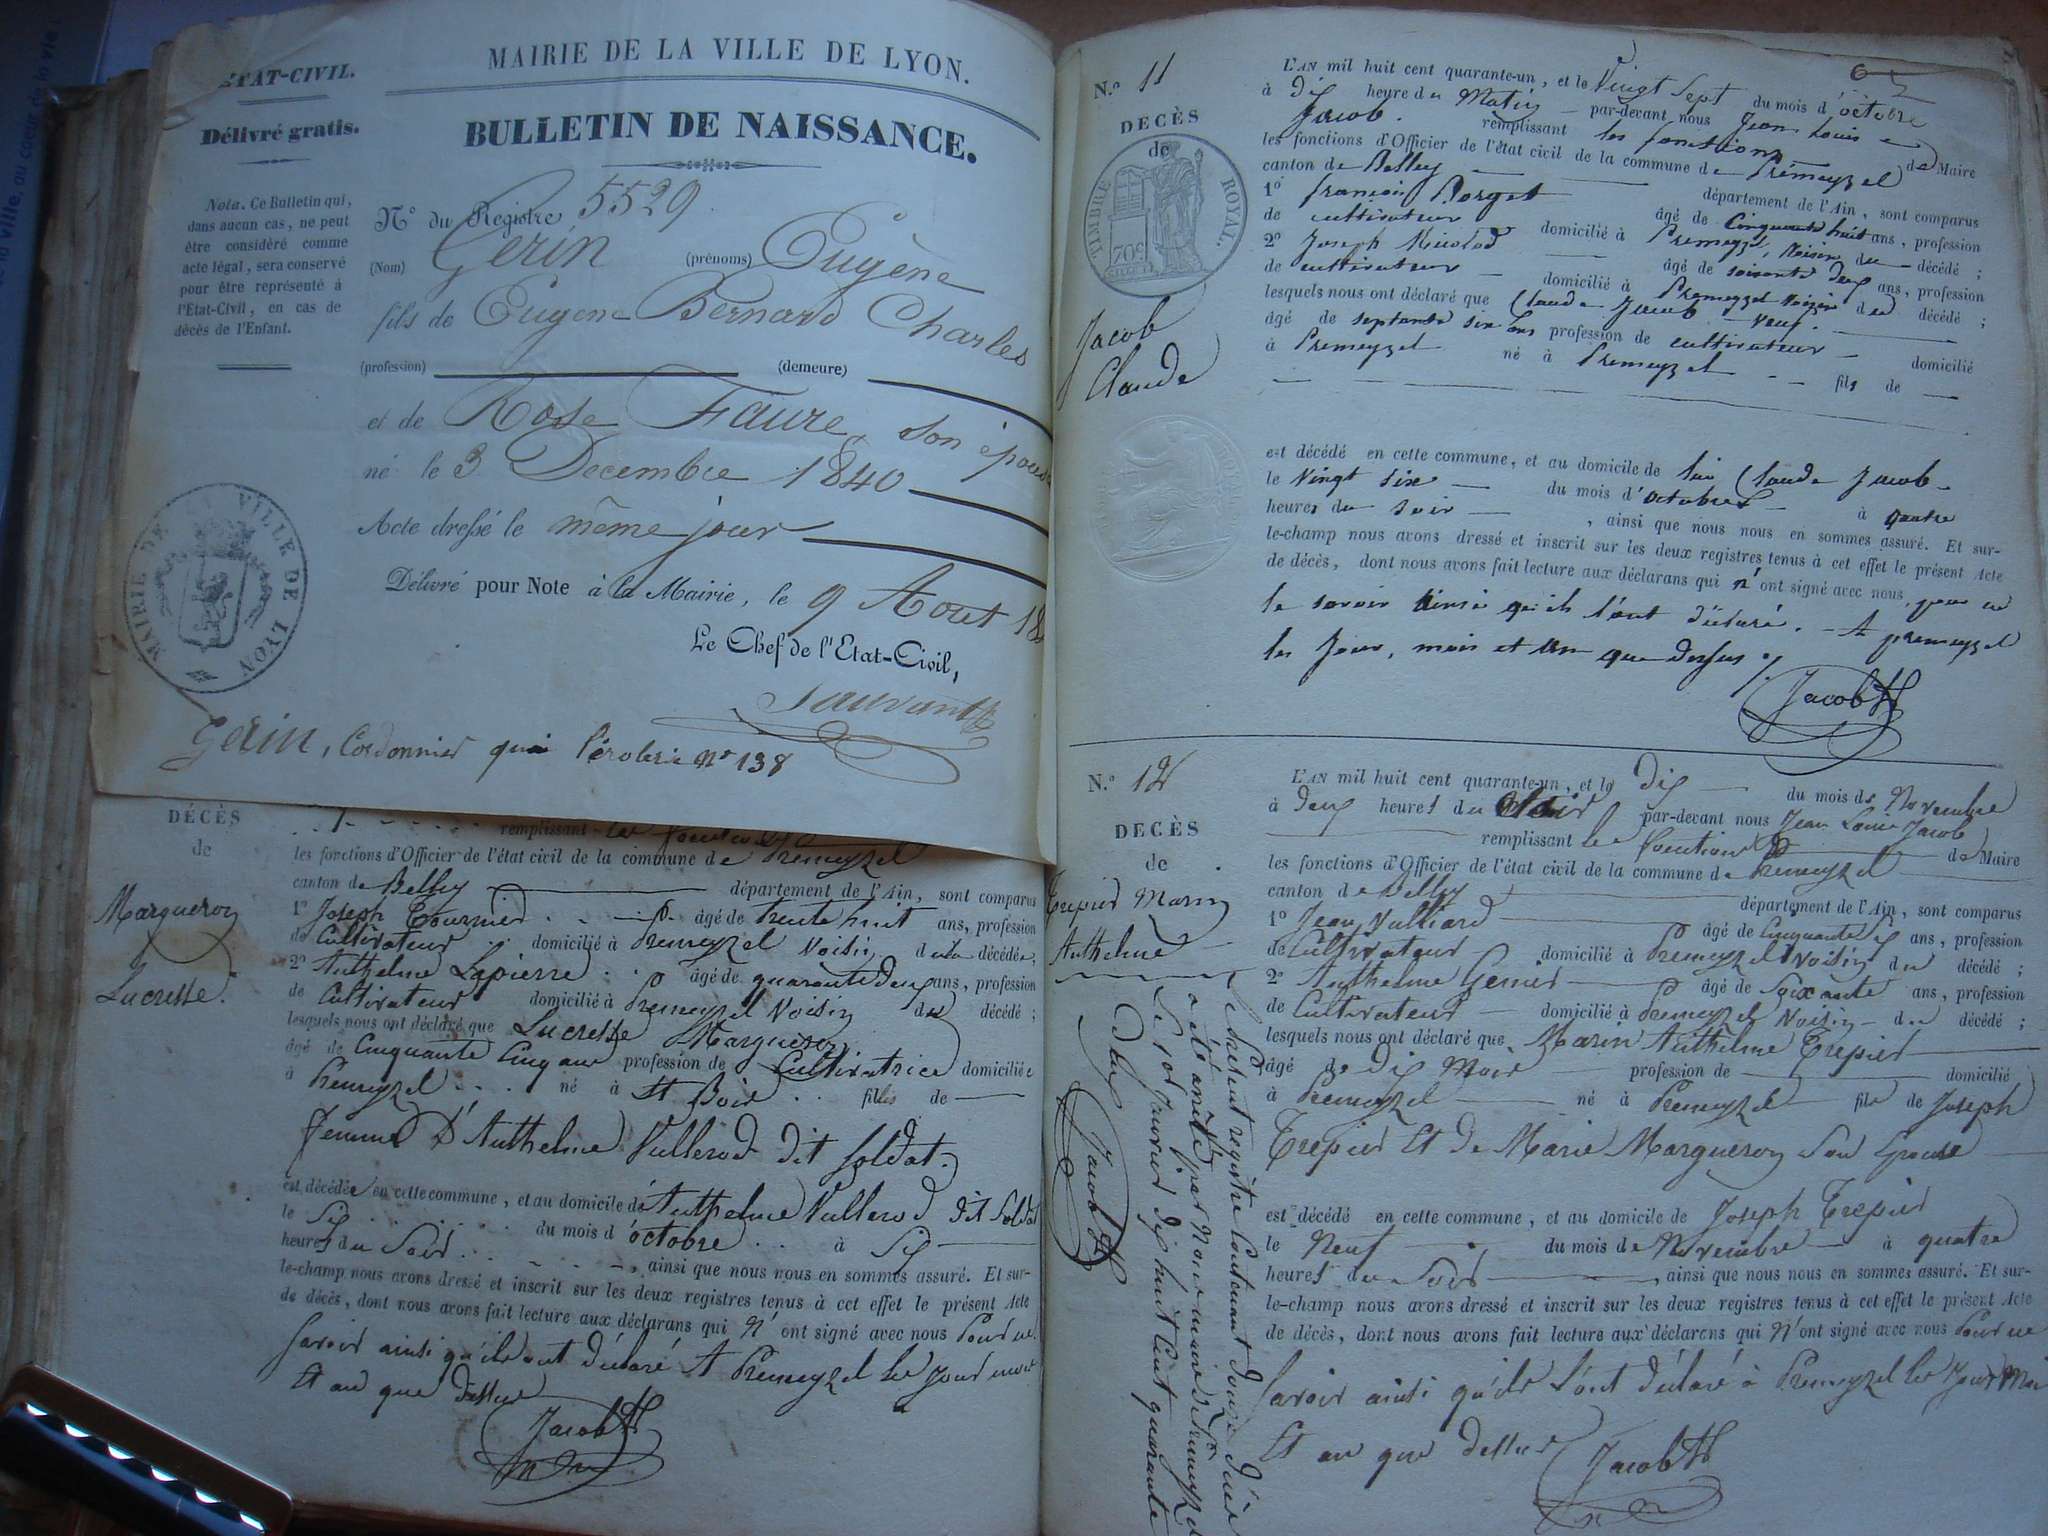 ÉTAT-CIVIL.
Délivré gratis.
Nota. Ce Bulletin qui,
dans aucun cas, ne peut
être considéré comme
acte légal, sera conservé
pour être représenté à
l'Etat-Civil, en cas de
décès de l'Enfant.
MAIRIE DE LA VILLE DE LYON
MAIRIE DE LA VILLE DE LYON.
BULLETIN DE NAISSANCE.
N° du Registre 5529
(Nom) Gerin (prénoms) Eugène
fils de Eugene Bernard Charles
(profession) (demeure)
et de Rose Faure, son épouse
né le 3 Decembre 1840
Acte dressé le même jour
Délivré pour Note à la Mairie, le 9 Aout 18
Le Chef de l'Etat-Civil,
Gerin, Cordonnier quai N° 138
DÉCÈS
de
Margueron
Lucresse.
remplissant les fonctions
les fonctions d'Officier de l'état civil de la commune de Premeyzel
canton de Belley département de l'Ain, sont comparus
1° Joseph Tournier âgé de trente huit ans, profession
de Cultivateur domicilié à Premeyzel Voisin de la décédée.
2° Anthelme Lapierre âgé de quarante deux ans, profession
de Cultivateur domicilié à Premeyzel Voisin du décédé ;
lesquels nous ont déclaré que Lucresse Margueron
âgé de Cinquante Cinq ans profession de Cultivatrice domiciliée
à Premeyzel né à St Bois filles de
femme D'Anthelme Vullerod dit Soldat.
est décédée en cette commune, et au domicile de Anthelme Vullerod dit Soldat
le Six du mois d'octobre à Six
heures du Soir, ainsi que nous nous en sommes assuré. Et sur-
le-champ nous avons dressé et inscrit sur les deux registres tenus à cet effet le présent Acte
de décès, dont nous avons fait lecture aux déclarans qui N'ont signé avec nous Pour ne
Savoir ainsi qu'ils ont déclaré A Premeyzel les jour mois
Et an que dessus
Jacob
N.° 11
DECÈS
de
TIMBRE ROYAL.
70c
Jacob
Claude
L'AN mil huit cent quarante-un, et le Vingt Sept du mois d'octobre
à dix heure du Matin par-devant nous Jean Louis
Jacob. remplissant les fonctions de Maire
les fonctions d'Officier de l'état civil de la commune de Prémeyzel
canton de Belley département de l'Ain, sont comparus
1° françois Borget âgé de Cinquante huit ans, profession
de cultivateur domicilié à Premeyzel, Voisin du décédé ;
2° Joseph Nicolod âgé de soixante deux ans, profession
de cultivateur domicilié à Premeyzel Voisin du décédé ;
lesquels nous ont déclaré que Claude Jacob Veuf
âgé de septante six ans profession de cultivateur domicilié
à Premeyzel né à Premeyzel fils de
est décédé en cette commune, et au domicile de lui Claude Jacob
le Vingt Six du mois d'octobre à quatre
heures du Soir, ainsi que nous nous en sommes assuré. Et sur-
le-champ nous avons dressé et inscrit sur les deux registres tenus à cet effet le présent Acte
de décès, dont nous avons fait lecture aux déclarans qui n'ont signé avec nous pour ne
le savoir ainsi qu'ils l'ont déclaré. A premeyzel
les Jour, mois et an que dessus
Jacob
N.° 12
DECÈS
de
Trepier Marin
Anthelme
L'AN mil huit cent quarante-un, et le dix du mois de Novembre
à deux heures du Soir par-devant nous Jean Louis Jacob
remplissant les fonctions de Maire
les fonctions d'Officier de l'état civil de la commune de Premeyzel
canton de Belley département de l'Ain, sont comparus
1° Jean Vulliard âgé de Cinquante six ans, profession
de Cultivateur domicilié à Premeyzel Voisin du décédé ;
2° Anthelme Genier âgé de Soixante ans, profession
de Cultivateur domicilié à Premeyzel Voisin du décédé ;
lesquels nous ont déclaré que Marin Anthelme Trepier
âgé de dix Mois profession de domicilié
à Premeyzel né à Premeyzel fils de Joseph
Trepier Et de Marie Margueron Son Epouse
est décédé en cette commune, et au domicile de Joseph Trepier
le Neuf du mois de Novembre à quatre
heures du Soir, ainsi que nous nous en sommes assuré. Et sur-
le-champ nous avons dressé et inscrit sur les deux registres tenus à cet effet le présent Acte
de décès, dont nous avons fait lecture aux déclarans qui N'ont signé avec nous Pour ne
Savoir ainsi qu'ils l'ont déclaré à Premeyzel les Jour Moi
Et an que dessus
Jacob
Le présent registre Contenant Douze
a été arrêté par Nous maire de Premeyzel
Le janvier dix huit Cent quarante
deux Jacob